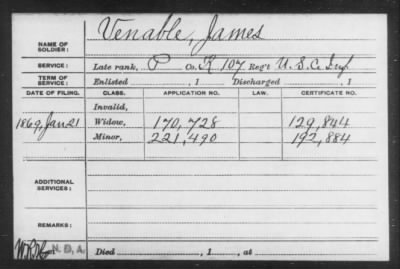 Venable, James
NAME OF SOLDIER:
SERVICE: Late rank, P Co. K 107 Reg't U.S.C. Inf.
TERM OF SERVICE: Enlisted , 1 Discharged , 1
DATE OF FILING. CLASS. APPLICATION NO. LAW. CERTIFICATE NO.
Invalid,
1869, Jan 21 Widow, 170,728 129,844
Minor, 221,490 192,884
ADDITIONAL SERVICES:
REMARKS:
N.D.A. Died , 1 , at